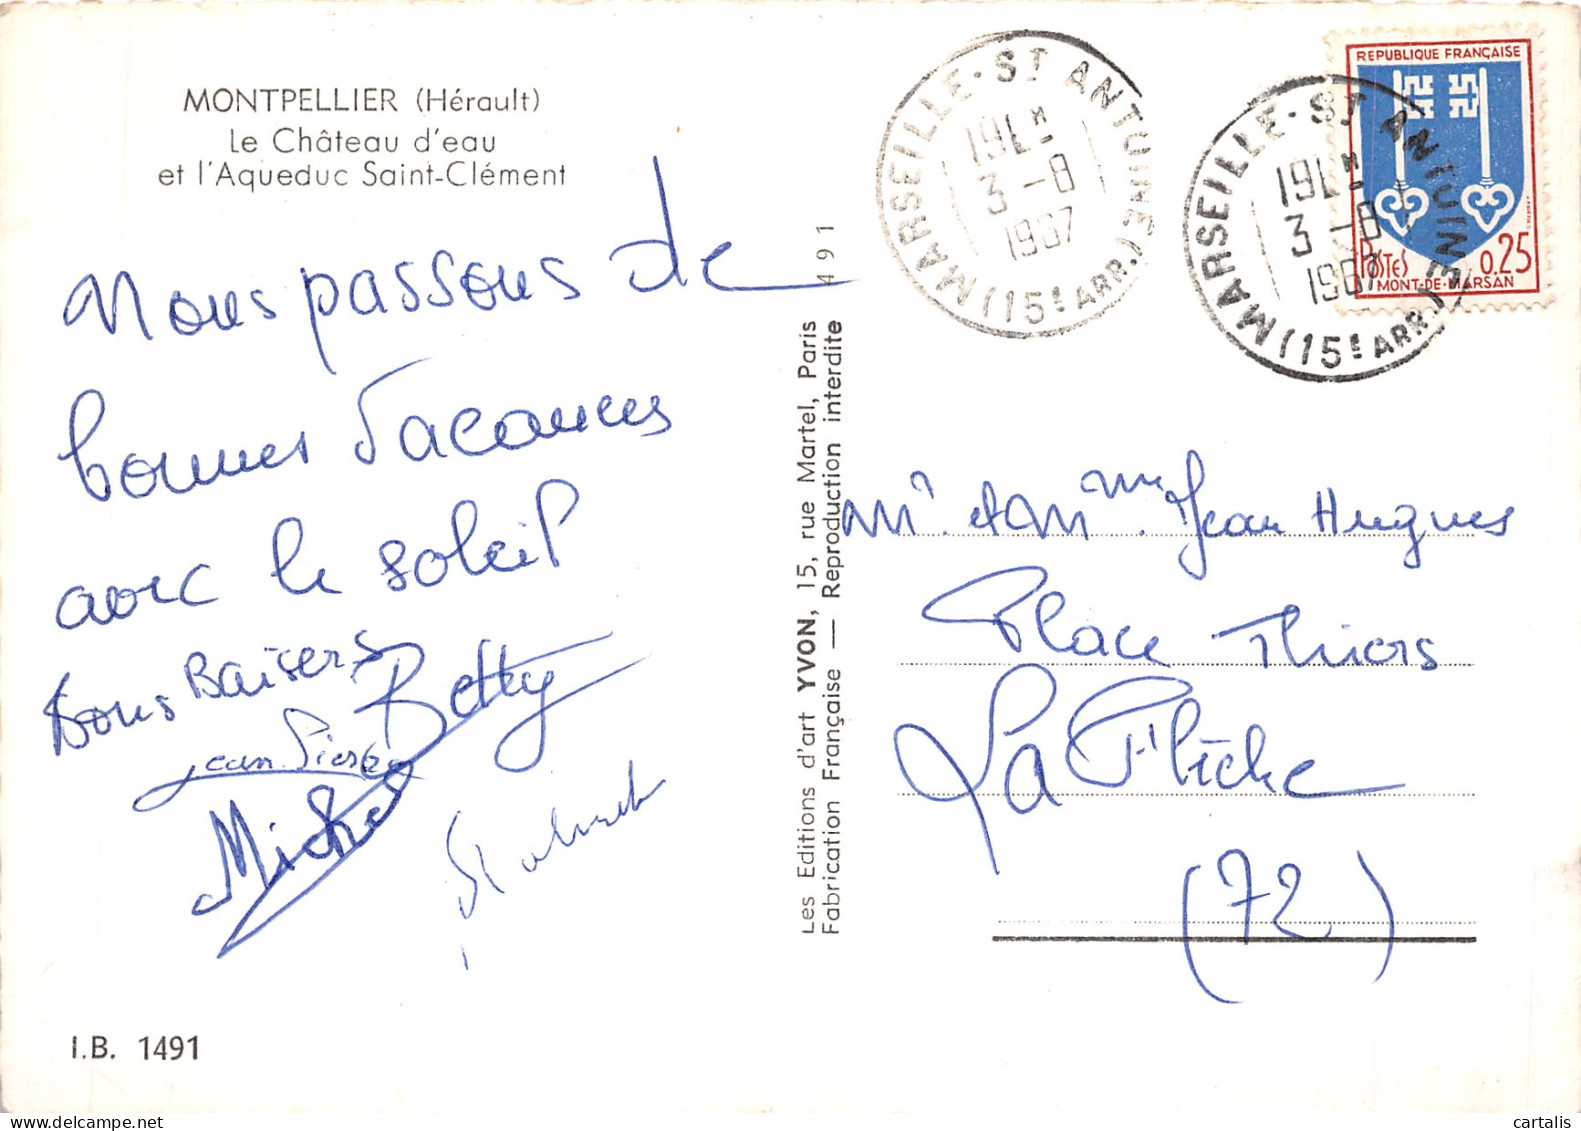 MONTPELLIER (Hérault)
Le Château d'eau
et l'Aqueduc Saint-Clément
Nous passons de
bonnes Vacances
avec le soleil
Bons Baisers
Betty
Jean Pierre
Michel
I.B. 1491
Les Editions d'art YVON, 15, rue Martel, Paris
Fabrication Française — Reproduction interdite
491
MARSEILLE-ST ANTOINE (15E ARR.)
19H
3-8
1967
MARSEILLE-ST ANTOINE (15E ARR.)
19H
3-8
1967
REPUBLIQUE FRANÇAISE
POSTES 0.25
MONT-DE-MARSAN
Mr et Mme Jean Hugues
Place Thiers
La Flèche
(72)
cartalis